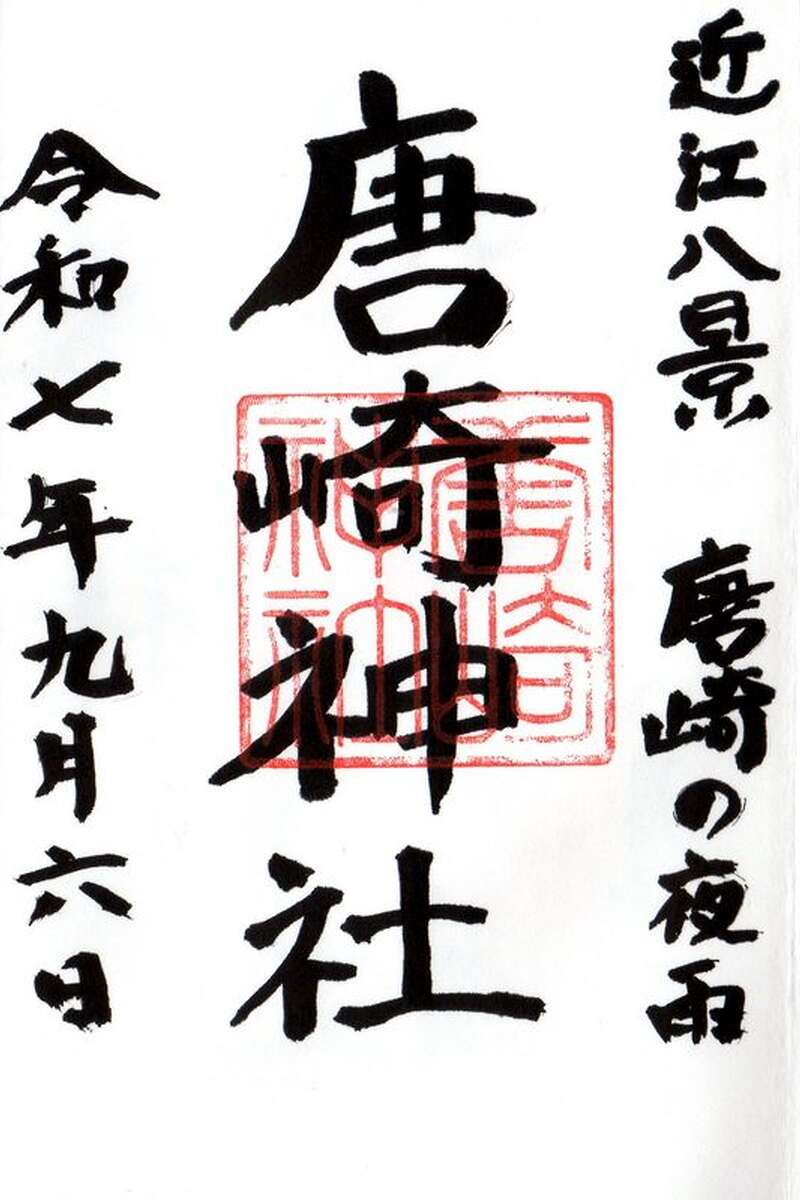 近江八景 唐崎の夜雨
唐崎神社
唐崎神社
令和七年九月六日